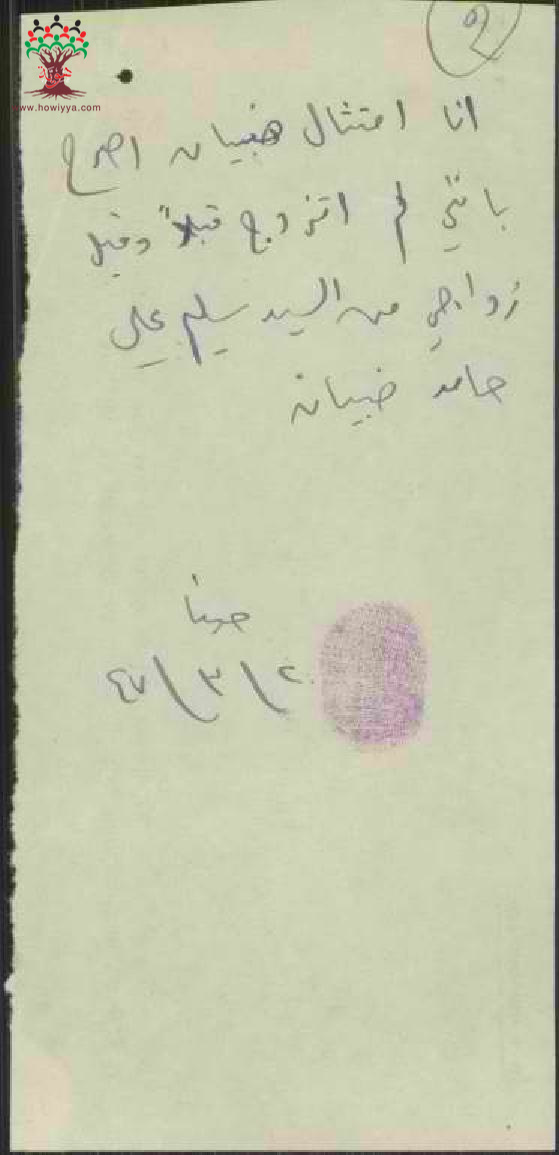 ٩
www.howiyya.com
انا امتثال ضبيان اصرح
بانني لم اتزوج قبلاً وقبل
زواجي من السيد سليم علي
حامد ضبيان
حيفا
٢٠/٣/٤٧